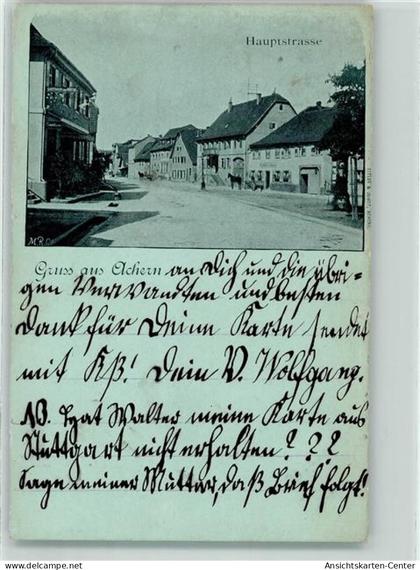 Hauptstrasse
Gruss aus Achern an Dich und die übri-
gen Verwandten und besten
Dank für Deine Karte sendet
mit Kß! Dein V. Wolfgang.
N. Hat Walter meine Karte aus
Stuttgart nicht erhalten? ??
Sage meiner Mutter, daß Brief folgt!
Ansichtskarten-Center